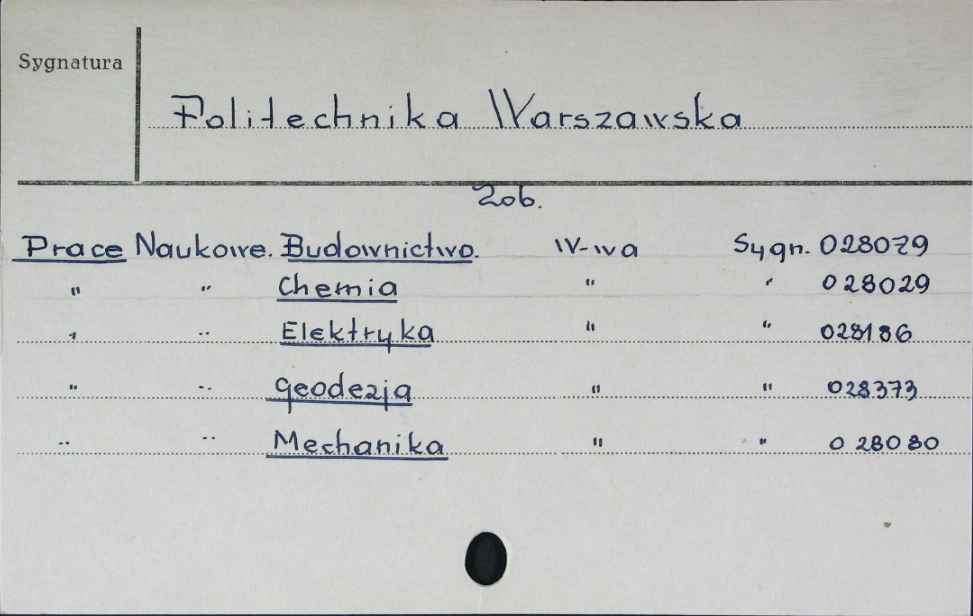 Sygnatura
Politechnika Warszawska
Zob.
Prace Naukowe. Budownictwo. W-wa Sygn. 028079
" " Chemia " " 028029
" " Elektryka " " 028186
" " Geodezja " " 028373
" " Mechanika " " 028080